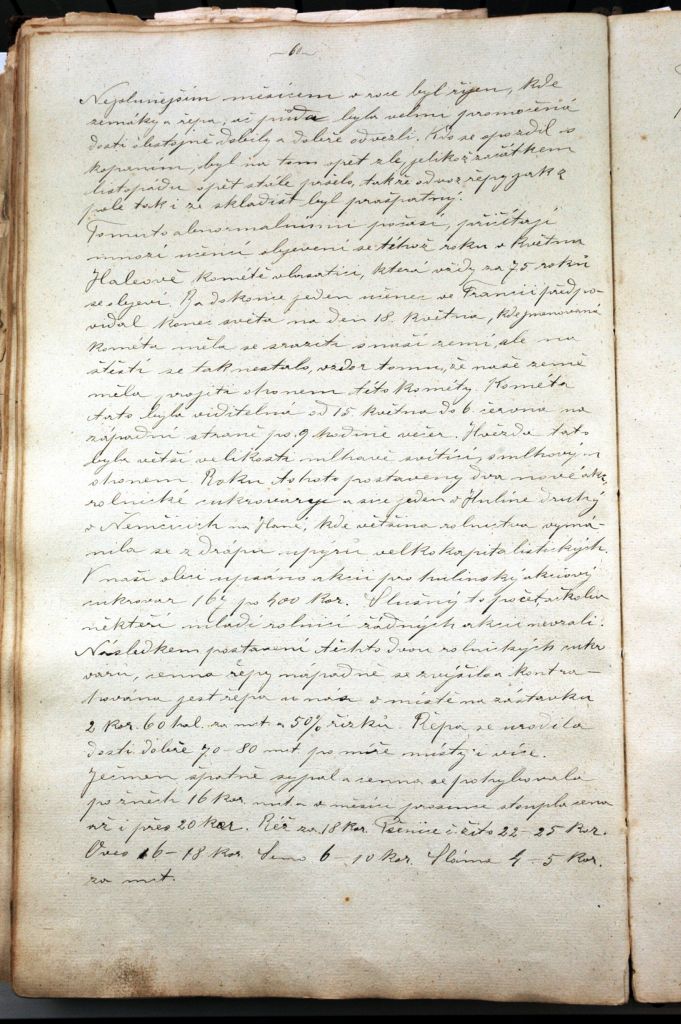 –60–
Nejslunějším měsícem v roce byl říjen, kde
zemáky a řepa, ač půda byla velmi promočená
dosti obstojně dobily a dobře odvezli. Kdo se opozdil s
kopaním, byl na tom opět zle, jelikož začátkem
listopadu opět stále pršelo, takže odvoz řepy jak z
pole tak i ze skladišť byl prašpatný.
Tomuto abnormalnímu počasí, přičítají
mnozí učenci objevení se téhož roku v květnu
Haleově kométě vlasatici, která vždy za 75 roků
se objeví. Ba dokonce jeden učenec ve Francii předpo-
vídal konec světa na den 18. května, kde jmenovaná
kométa měla se sraziti s naší zemí, ale na
štěstí se tak nestalo, vzdor tomu, že naše země
měla projíti ohonem této kométy. Kométa
tato byla viditelná od 15. května do 6. června na
západní straně po 9 hodině večer. Hvězda tato
byla větší velikosti mlhavě svítící, s mlhovým
ohonem. Roku tohoto postaveny dva nové akc.
rolnické cukrovary a sice jeden v Hulíně druhý
v Němčicích na Hané, kde většina rolnictva vymá-
nila se z drápů upyrů velkokapitalistických.
V naší obci upsáno akcií pro hulínský akciový
cukrovar 162 po 400 Kor. Slušný to počet, ačkoliv
někteří mladí rolníci žádných akcií nevzali.
Následkem postavení těchto dvou rolnických cukr
varů, cenna řepy nápadně se zvýšila a kontra-
hována jest řepa u nás v místě na zástavku
2 Kor. 60 hal. za mct. a 50% řízků. Řepa se urodila
dosti dobře 70–80 mct. po míře místy i více.
Ječmen špatně sypal a cenna se pohybovala
po žněch 16 Kor. mct. a v měsíci prosinci stoupla cena
až i přes 20 Kor. Réž za 18 Kor. Pšenice čisto 22–25 Kor.
Oves 16–18 Kor. Seno 6–10 Kor. Sláma 4–5 Kor.
za mct.